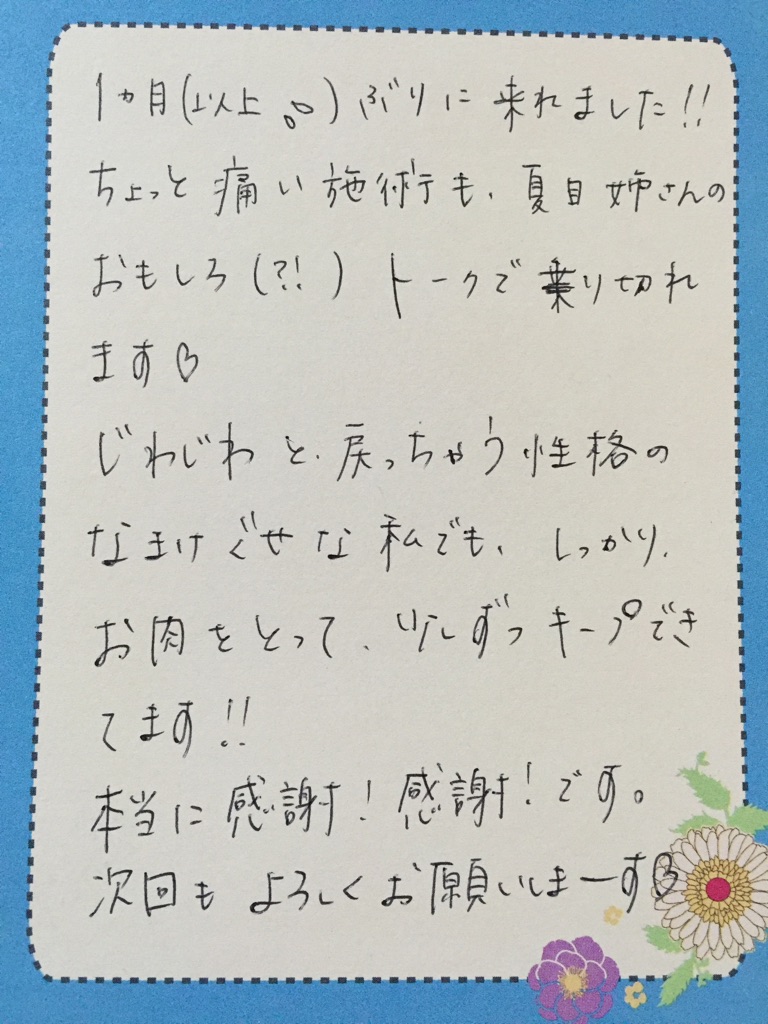 1ヵ月(以上。。)ぶりに来れました!!
ちょっと痛い施術も、夏目姉さんの
おもしろ(?!)トークで乗り切れ
ます♡
じわじわと、戻っちゃう性格の
なまけぐせな私でも、しっかり、
お肉をとって、少しずつキープでき
てます!!
本当に感謝!感謝!です。
次回もよろしくお願いしまーす♡